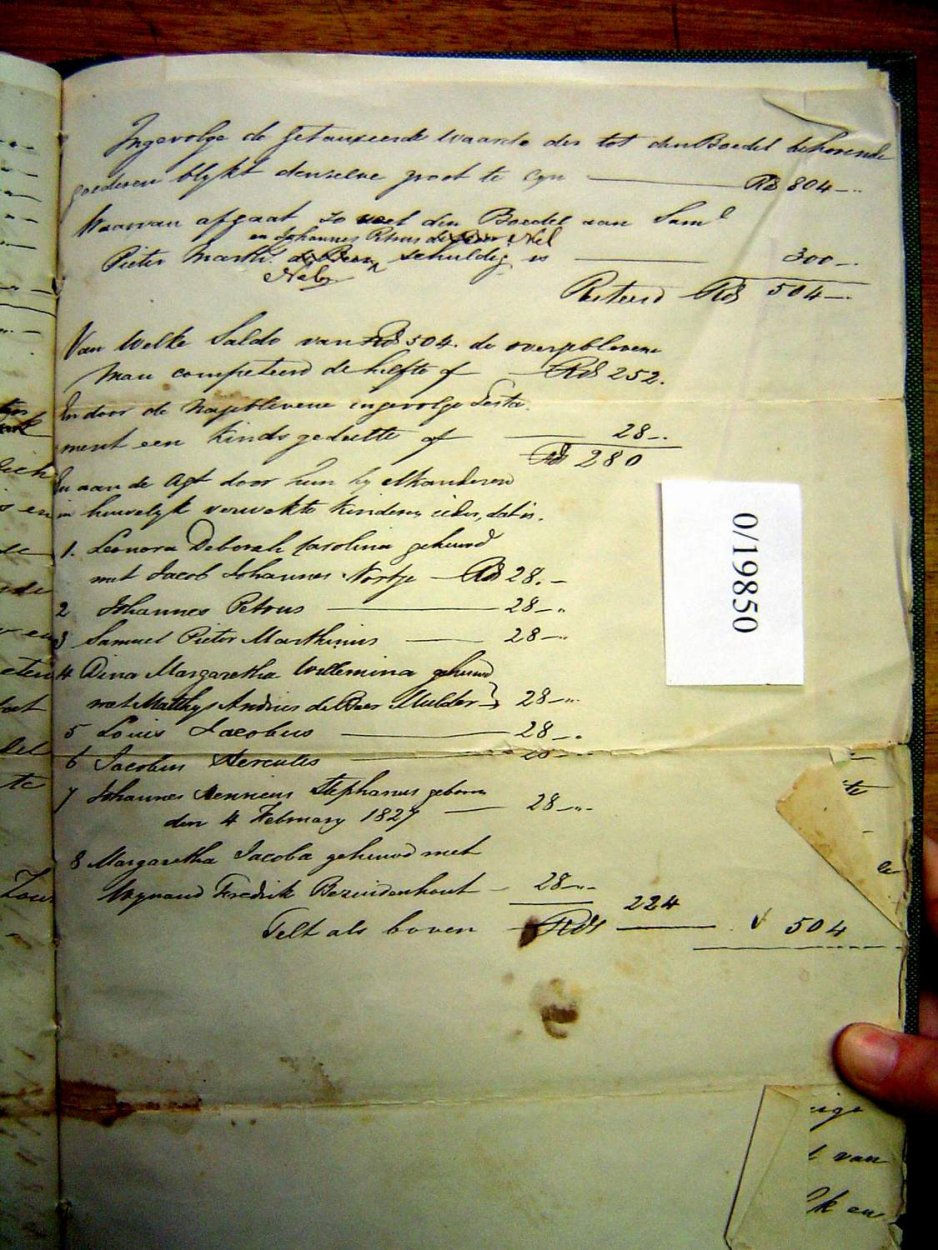 Ingevolge de Getauxeerde Waarde der tot den Boedel behorende
goederen blykt denzelve groot te zyn Rds 804
Waarvan afgaat zo veel den Boedel aan Saml
en Johannes Petrus de Nel
Pieter Marths. schuldig is 300
Nel
Resteerd Rds 504
Van Welke Saldo van Rds 504. de overgeblevene
Man competeerd de helfte of Rds 252.
En door de Nageblevene ingevolge Testa-
ment een Kinds gedeelte of 28
Rds 280
En aan de Agt door hun by elkanderen
in huwelyk verwekte Kinderen, ieder, dat is.
1. Leonora Deborah Carolina gehuwd
met Jacob Johannes Nortje Rds 28.
2 Johannes Petrus 28
3 Samuel Pieter Marthinus 28
4 Dina Margaretha Willemina gehuwd
met Matthys Andries de Beer Mulder 28
5 Louis Jacobus 28
6 Jacobus Hercules 28
7 Johannes Stephanus geboren
den 4 February 1827 28
8 Margaretha Jacoba gehuwd met
Wynand Fredrik Bezuidenhout 28
224
Telt als boven Rds 504
0/19850
te
van
en